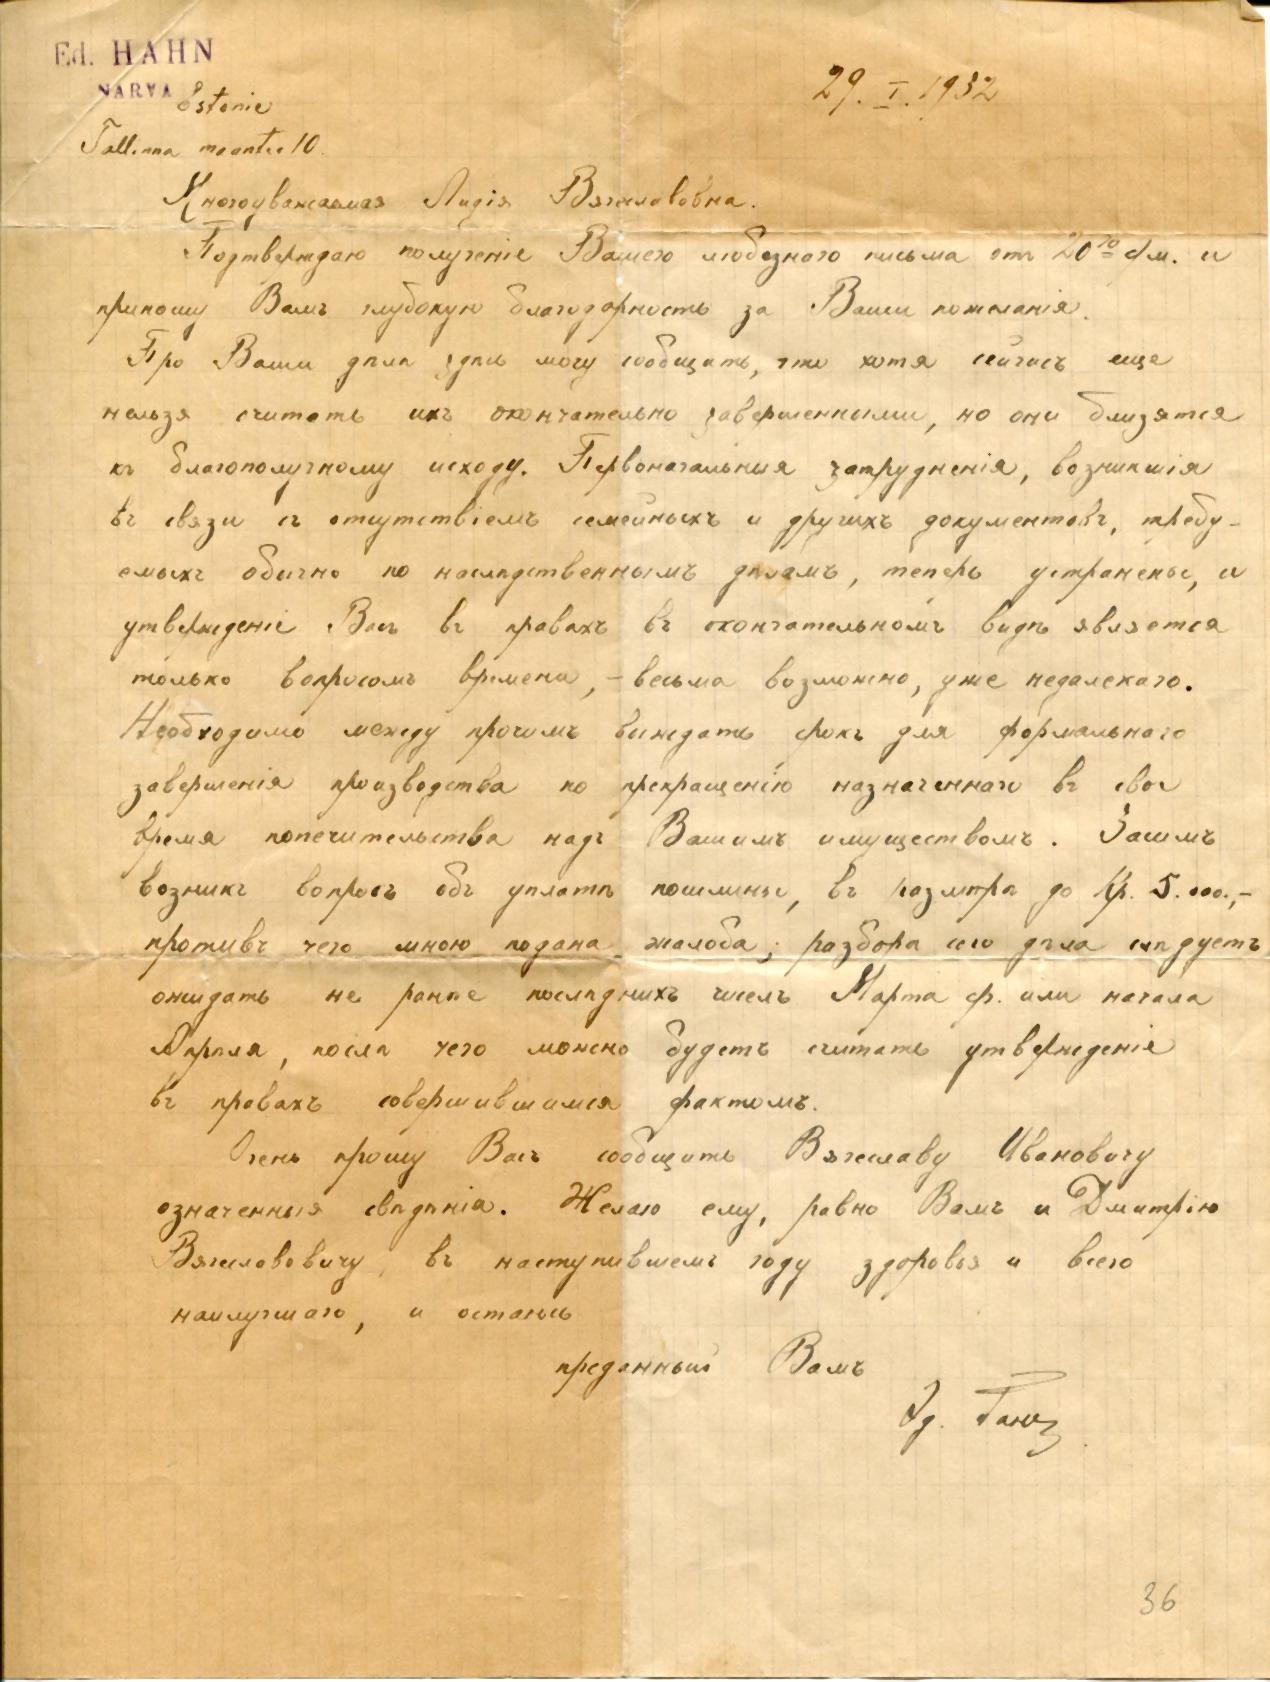 Ed. HAHN
NARVA
Estonie
Tallinna maantee 10.
29. I. 1932
Многоуважаемая Лидія Вячеславовна.
Подтверждаю полученіе Вашего любезного письма отъ 20го с/м. и
приношу Вамъ глубокую благодарность за Ваши пожеланія.
Про Ваши дѣла здѣсь могу сообщить, что хотя сейчасъ еще
нельзя считать ихъ окончательно завершенными, но они близятся
къ благополучному исходу. Первоначальныя затрудненія, возникшія
въ связи съ отсутствіемъ семейныхъ и другихъ документовъ, требу-
емыхъ обычно по наслѣдственнымъ дѣламъ, теперь устранены, и
утвержденіе Васъ въ правахъ въ окончательномъ видѣ является
только вопросомъ времени, – весьма возможно, уже недалекаго.
Необходимо между прочимъ выждать срокъ для формальнаго
завершенія производства по прекращенію назначеннаго въ свое
время попечительства надъ Вашимъ имуществомъ. Засимъ
возникъ вопросъ объ уплатѣ пошлины, въ размѣрѣ до Кр. 5.000,–
противъ чего мною подана жалоба; разбора сего дѣла слѣдуетъ
ожидать не ранѣе послѣднихъ чиселъ Марта ср. или начала
Апрѣля, послѣ чего можно будетъ считать утвержденіе
въ правахъ совершившимся фактомъ.
Очень прошу Васъ сообщить Вячеславу Ивановичу
означенныя свѣдѣнія. Желаю ему, равно Вамъ и Дмитрію
Вячеславовичу, въ наступившемъ году здоровья и всего
наилучшаго, и остаюсь
преданный Вамъ
Эд. Ганъ
36